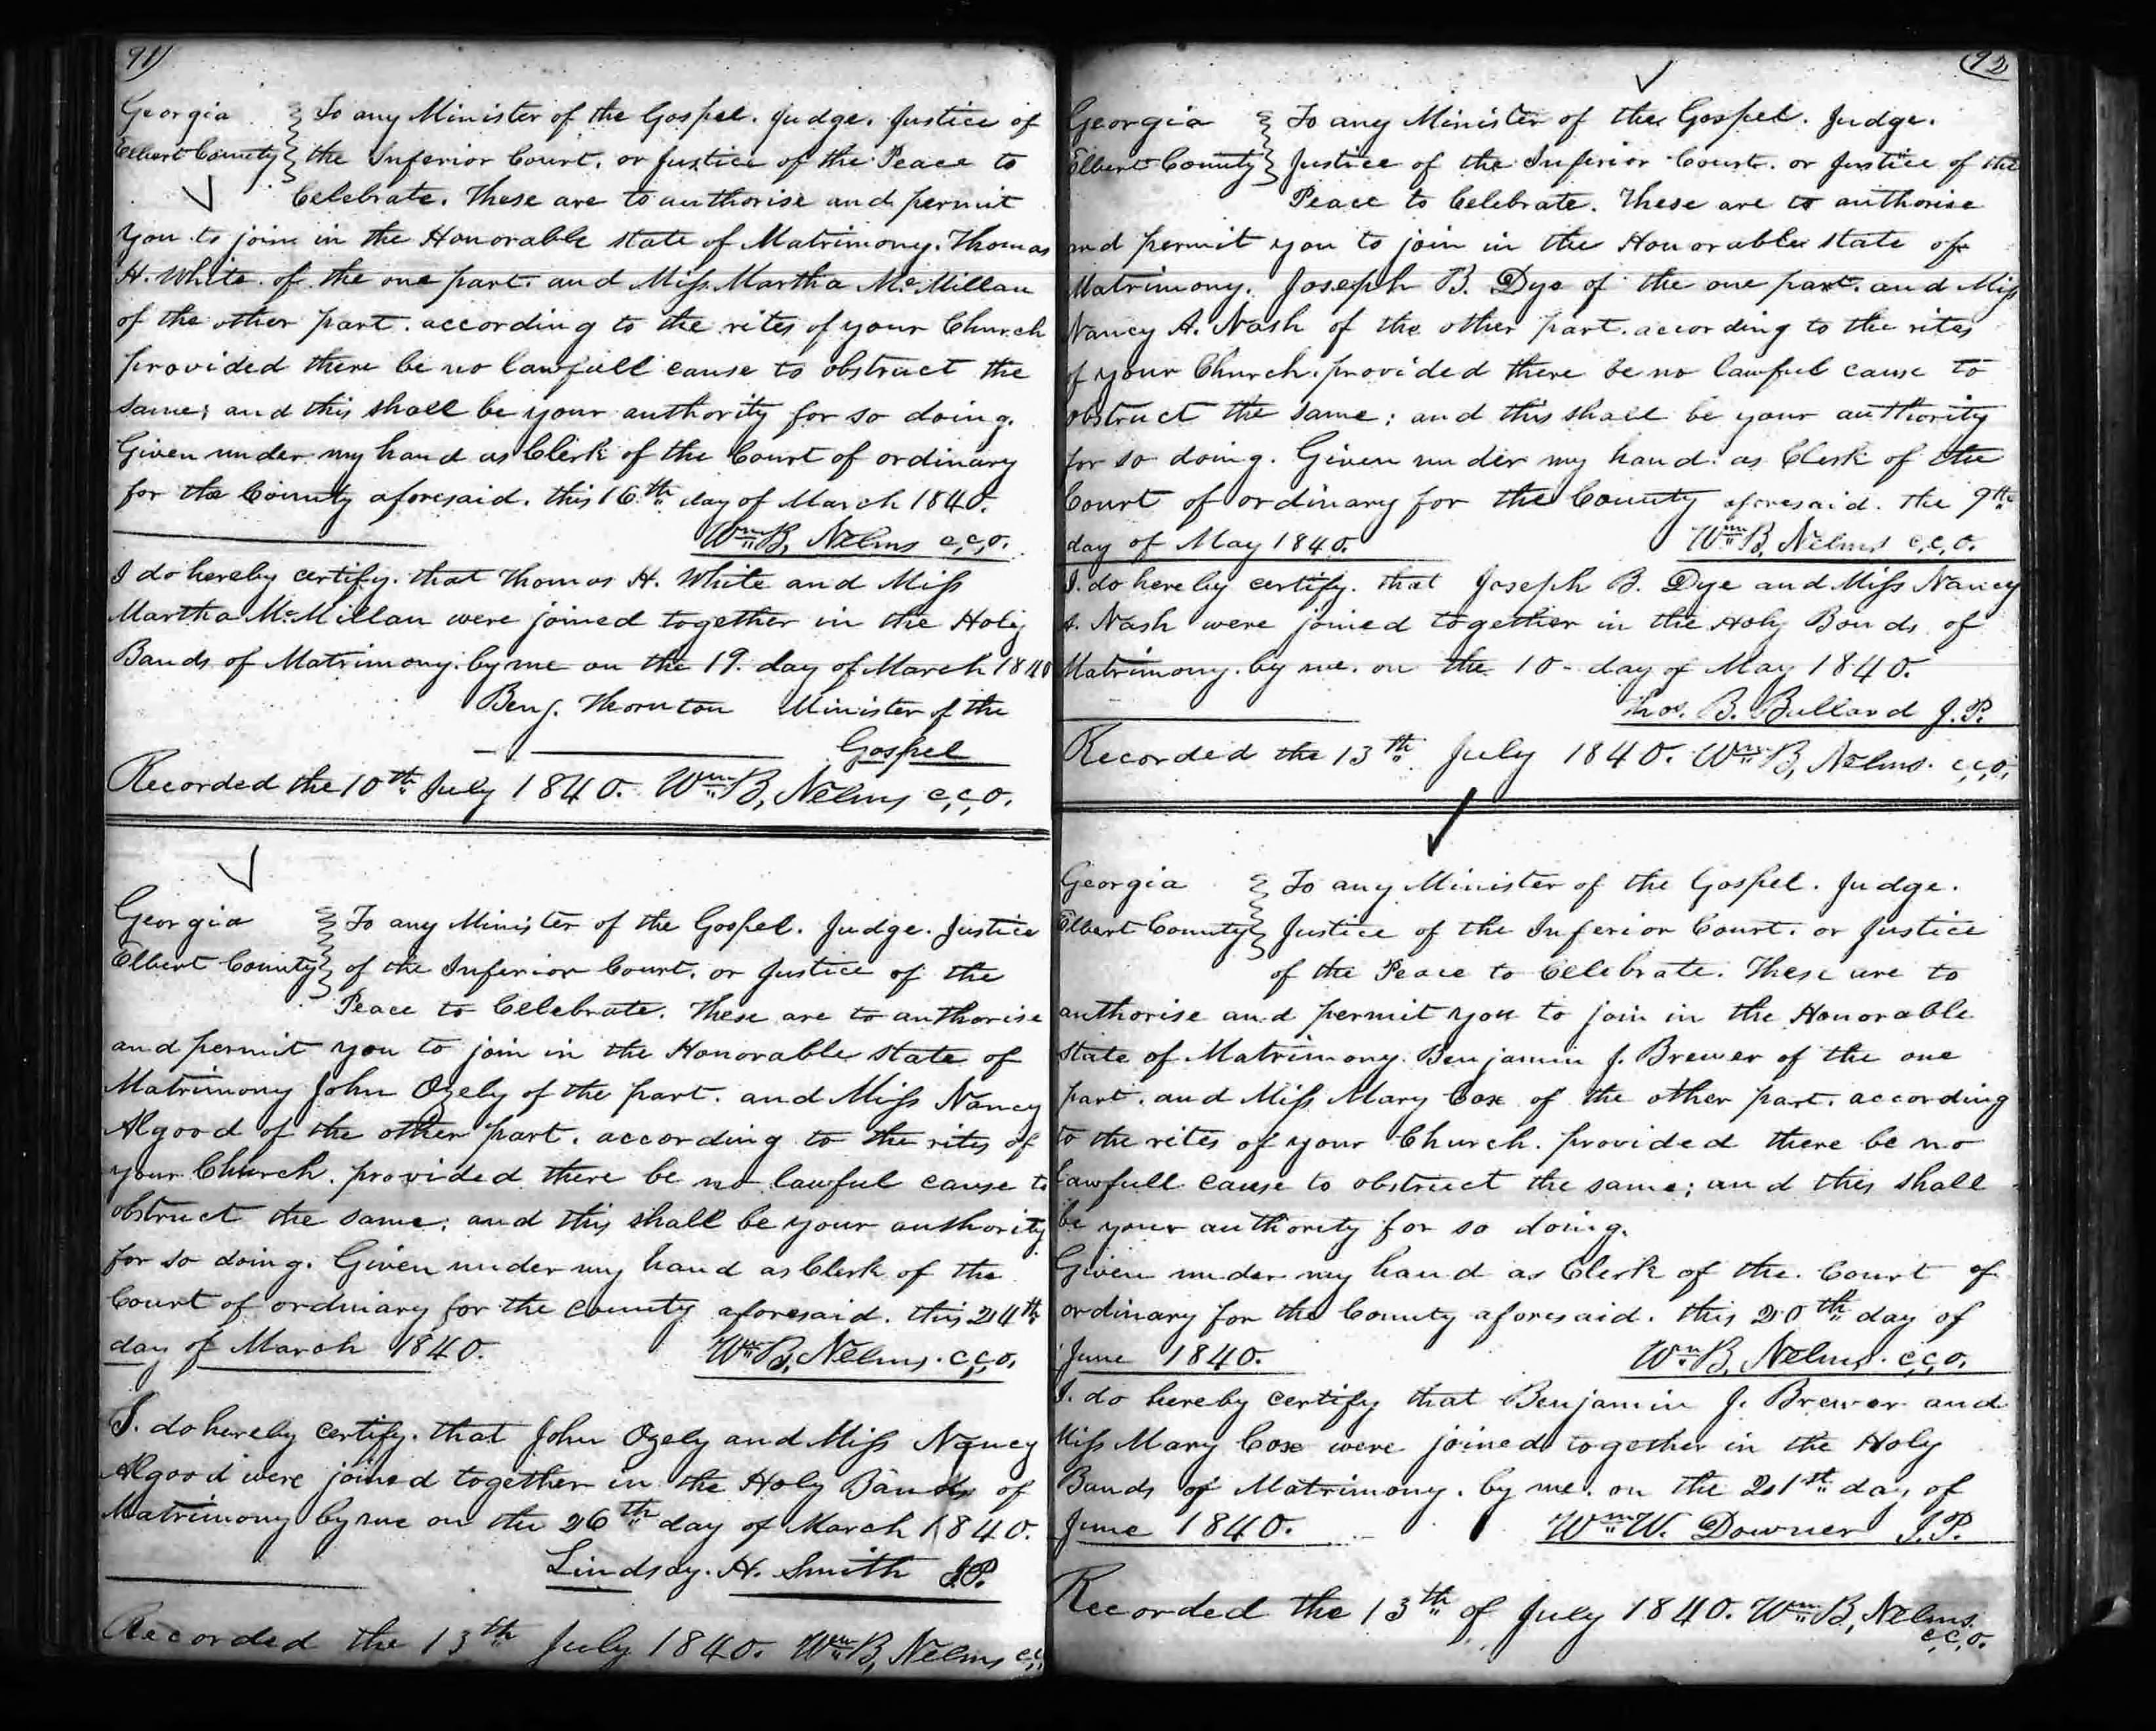 91)
Georgia To any Minister of the Gospel. Judge. Justice of
Elbert County the Inferior Court. or Justice of the Peace to
Celebrate. These are to authorise and permit
you to join in the Honorable state of Matrimony. Thomas
H. White. of the one part. and Miss Martha McMillan
of the other part. according to the rites of your Church
provided there be no lawfull cause to obstruct the
same; and this shall be your authority for so doing.
Given under my hand as Clerk of the Court of ordinary
for the County aforesaid. this 16th day of March 1840.
Wm B, Nelms c,c,o.
I do hereby certify. that Thomas H. White and Miss
Martha McMillan were joined together in the Holy
Bands of Matrimony. by me on the 19. day of March 1840
Benj. Thornton Minister of the
Gospel
Recorded the 10th July 1840. Wm B, Nelms c,c,o.
Georgia To any Minister of the Gospel. Judge. Justice
Elbert County of the Inferior Court. or Justice of the
Peace to Celebrate. These are to authorise
and permit you to join in the Honorable state of
Matrimony John Ozely of the part. and Miss Nancy
Algood of the other part. according to the rites of
your Church. provided there be no lawful cause to
obstruct the same; and this shall be your authority
for so doing. Given under my hand as Clerk of the
Court of ordinary for the county aforesaid. this 24th
day of March 1840. Wm B, Nelms. c,c,o.
I. do hereby certify. that John Ozely and Miss Nancy
Algood were joined together in the Holy Bands of
Matrimony by me on the 26th day of March 1840.
Lindsay. H. Smith J.P.
Recorded the 13th July 1840. Wm B, Nelms c,c,
92
Georgia To any Minister of the Gospel. Judge.
Elbert County Justice of the Inferior Court. or Justice of the
Peace to Celebrate. These are to authorise
and permit you to join in the Honorable state of
Matrimony. Joseph B. Dye of the one part. and Miss
Nancy A. Nash of the other part. according to the rites
of your Church. provided there be no lawful cause to
obstruct the same; and this shall be your authority
for so doing. Given under my hand. as Clerk of the
Court of ordinary for the County aforesaid. the 9th
day of May 1840. Wm B, Nelms c,c,o.
I. do hereby certify. that Joseph B. Dye and Miss Nancy
A. Nash were joined together in the Holy Bonds of
Matrimony. by me. on the 10- day of May 1840.
Thos. B. Bullard J.P.
Recorded the 13th July 1840. Wm B, Nelms. c,c,o,
Georgia To any Minister of the Gospel. Judge.
Elbert County Justice of the Inferior Court. or Justice
of the Peace to Celebrate. These are to
authorise and permit you to join in the Honorable
state of Matrimony. Benjamin J. Brewer of the one
part. and Miss Mary Cox of the other part. according
to the rites of your Church. provided there be no
lawfull cause to obstruct the same; and this shall
be your authority for so doing.
Given under my hand as Clerk of the. Court of
ordinary for the County aforesaid. this 20th day of
June 1840. Wm B, Nelms. c,c,o,
I. do hereby certify that Benjamin J. Brewer and
Miss Mary Cox were joined together in the Holy
Bands of Matrimony. by me. on the 21st day of
June 1840. Wm W. Downer J.P.
Recorded the 13th of July 1840. Wm B, Nelms.
c,c,o.